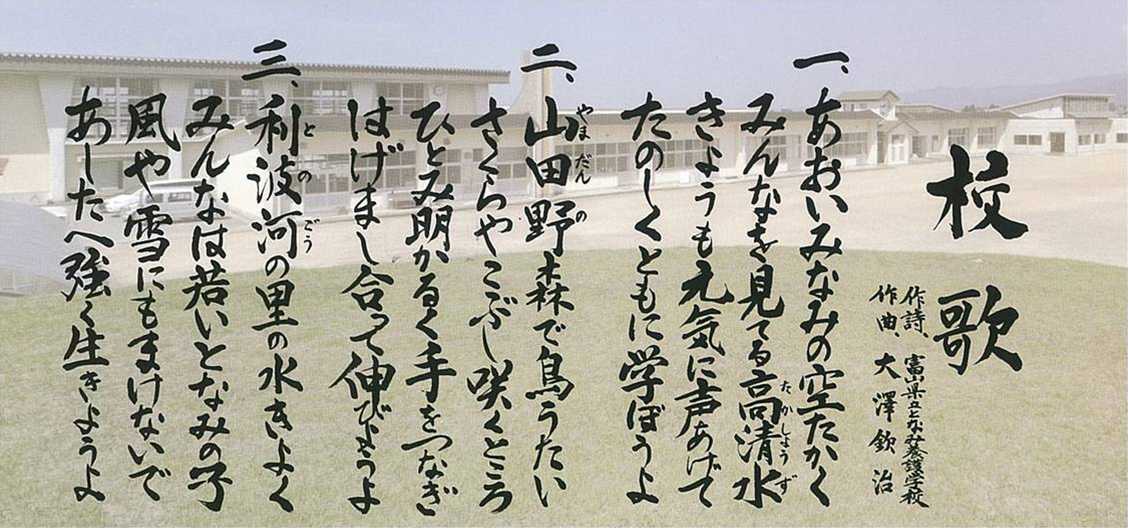 校歌
作詩、富山県立となみ養護学校
作曲、大澤欽治
一、あおいみなみの空たかく
みんなを見てる高清水
きょうも元気に声あげて
たのしくともに学ぼうよ
二、山田野森で鳥うたい
さくらやこぶし咲くところ
ひとみ明かるく手をつなぎ
はげまし合って伸びようよ
三、利波河の里の水きよく
みんなは若いとなみの子
風や雪にもまけないで
あしたへ強く生きようよ